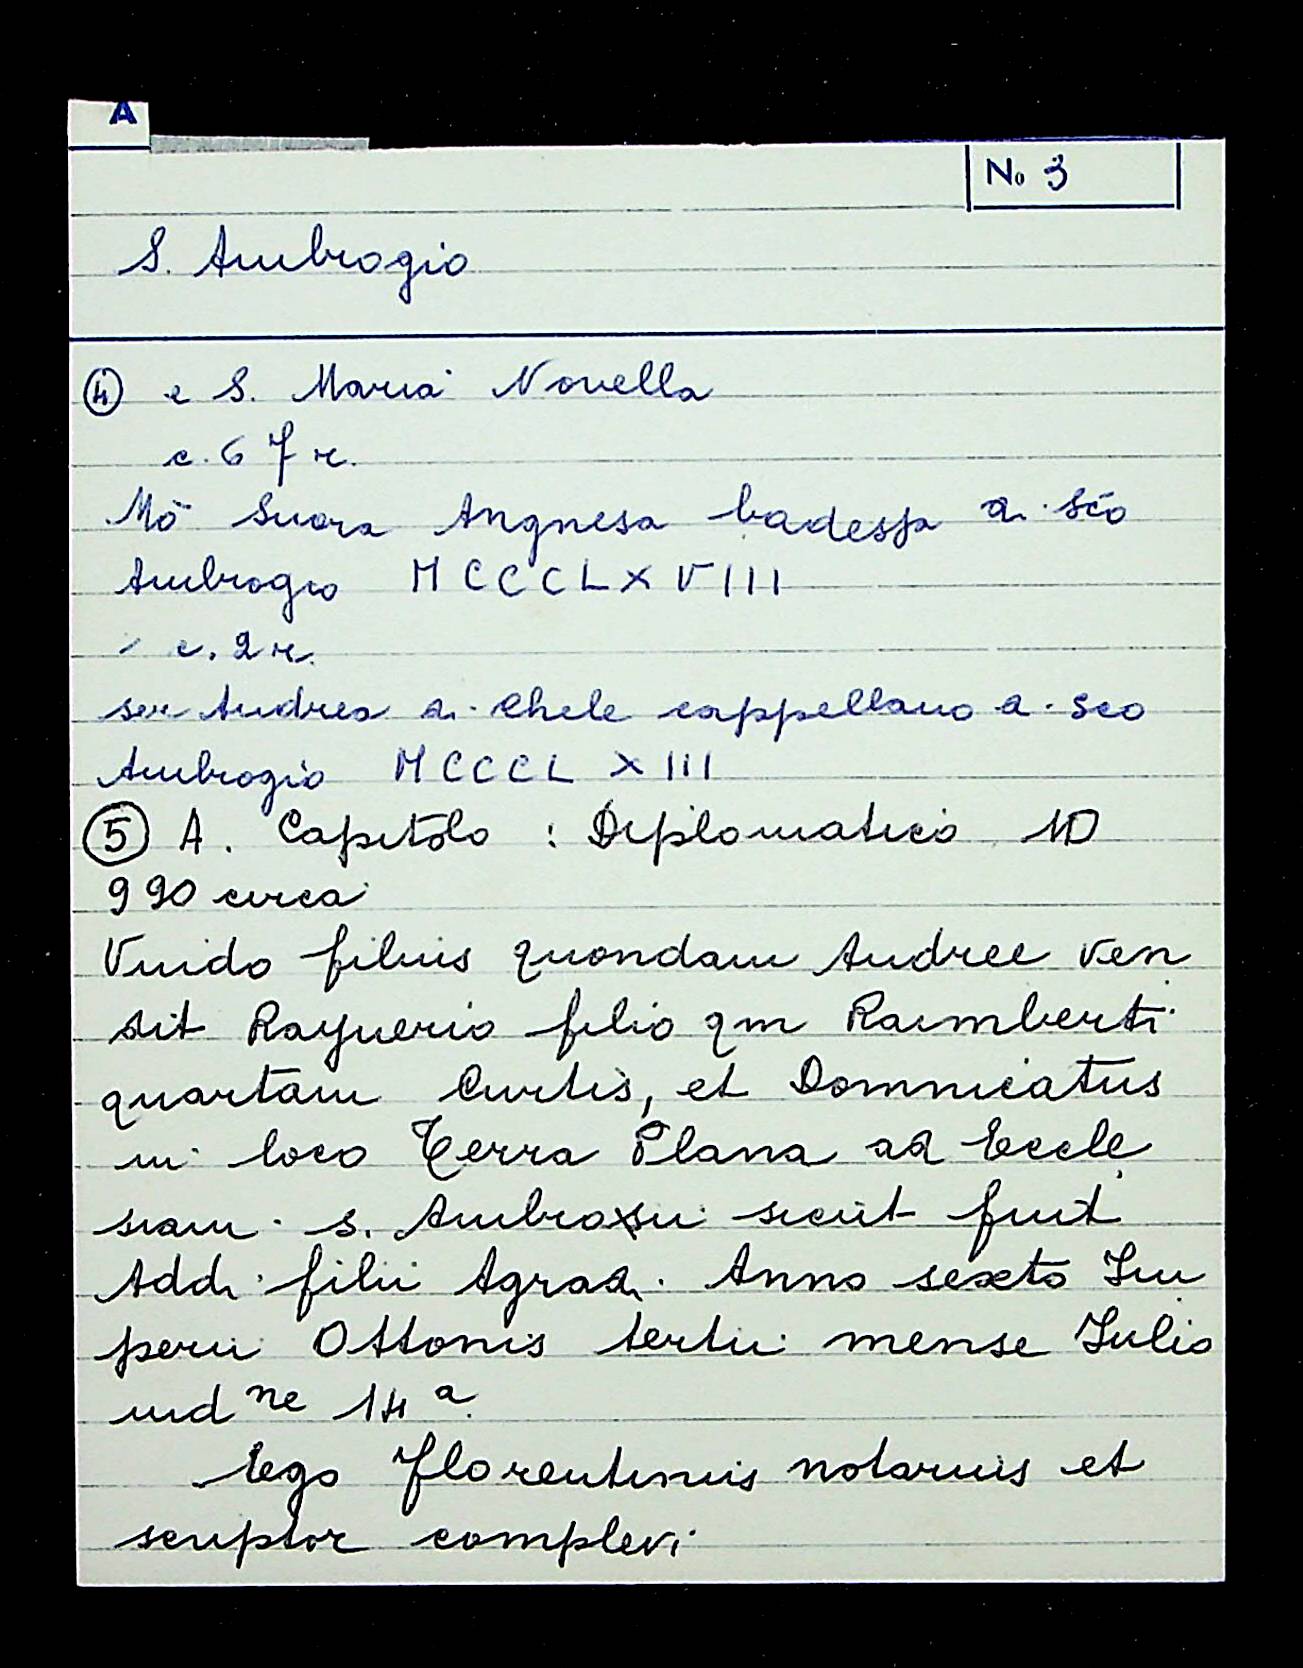 A
No 3
S. Ambrogio
④ e S. Maria Novella
c. 67 r.
Mō Suora Angnesa badessa di sc̄o
Ambrogio MCCCLXVIII
c. 2 r.
ser Andrea di Chele cappellano di sco
Ambrogio MCCCLXIII
⑤ A. Capitolo : Diplomatico
990 circa
Vuido filius quondam Andree ven
dit Raynerio filio qm Raimberti
quartam Curtis, et Domnicatus
in loco Terra Plana ad Eccle
siam s. Ambroxii sicut fuit
Addi filii Agradi. Anno sexto Im
perii Ottonis tertii mense Iulio
indne 14a.
Ego Florentinus notarius et
scriptor complevi